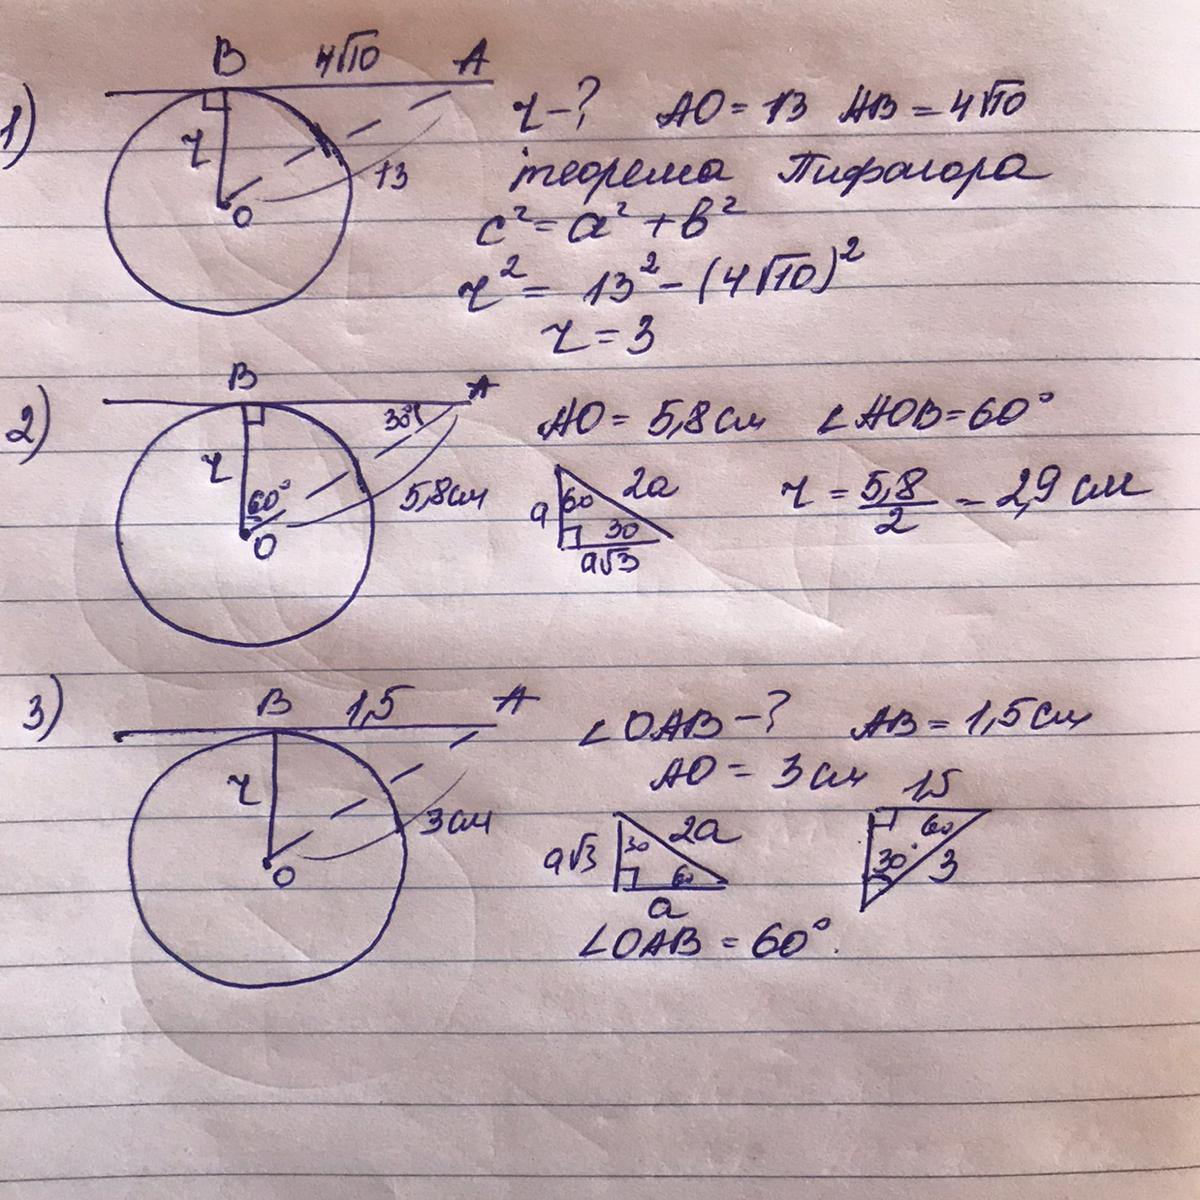 1)
B 4√10 A
r
13
O
r - ? AO = 13 AB = 4√10
теорема Пифагора
c² = a² + b²
r² = 13² - (4√10)²
r = 3
2)
B A
30°
r
60°
5,8 см
O
AO = 5,8 см ∠AOB = 60°
a 60 2a
30
a√3
r = 5,8/2 = 2,9 см
3)
B 1,5 A
r
3 см
O
∠OAB - ? AB = 1,5 см
AO = 3 см
a√3 30 2a
60
a
1,5
60
30° 3
∠OAB = 60°.